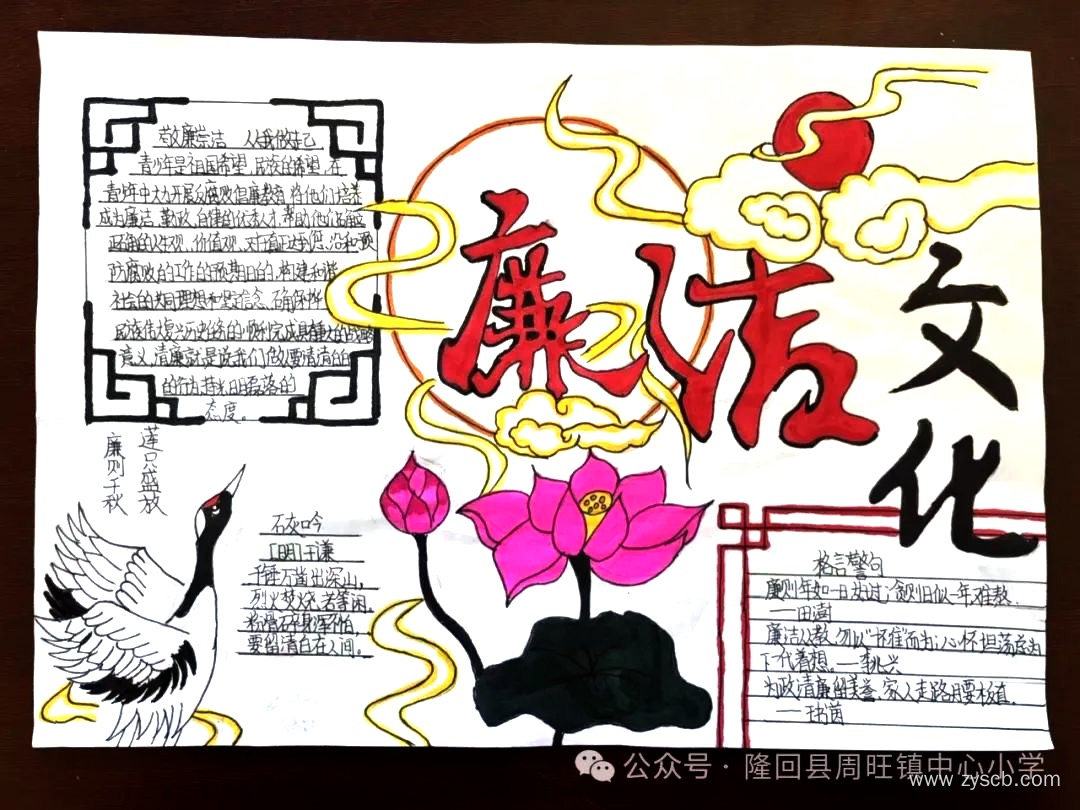 敬廉崇洁 从我做起
青少年是祖国希望,民族的希望,在
青少年中大力开展反腐败倡廉教育,将他们培养
成为廉洁,勤政,自律的优秀人才,帮助他们
正确的人生观、价值观,对
防腐败的工作的预期目的,构建和谐
社会的共同理想和坚定信念,确保
民族伟大复兴历史任务的顺利完成具有重大的战略
意义,清廉就是说我们做要清清白白
的行为,持光明磊落的
态度。
莲只盛放
廉则千秋
廉洁
文化
石灰吟
[明]于谦
千锤万凿出深山,
烈火焚烧若等闲,
粉骨碎身浑不怕,
要留清白在人间。
格言警句
廉则年如一日如过,贪则日似一年难熬.
——田澍
廉洁从教,勿以"怀催"而为,心怀坦荡应为
下代着想。——李兆兴
为政清廉留美誉,家人走路月要板直.
——茵
公众号·隆回县周旺镇中心小学
www.zyscb.com